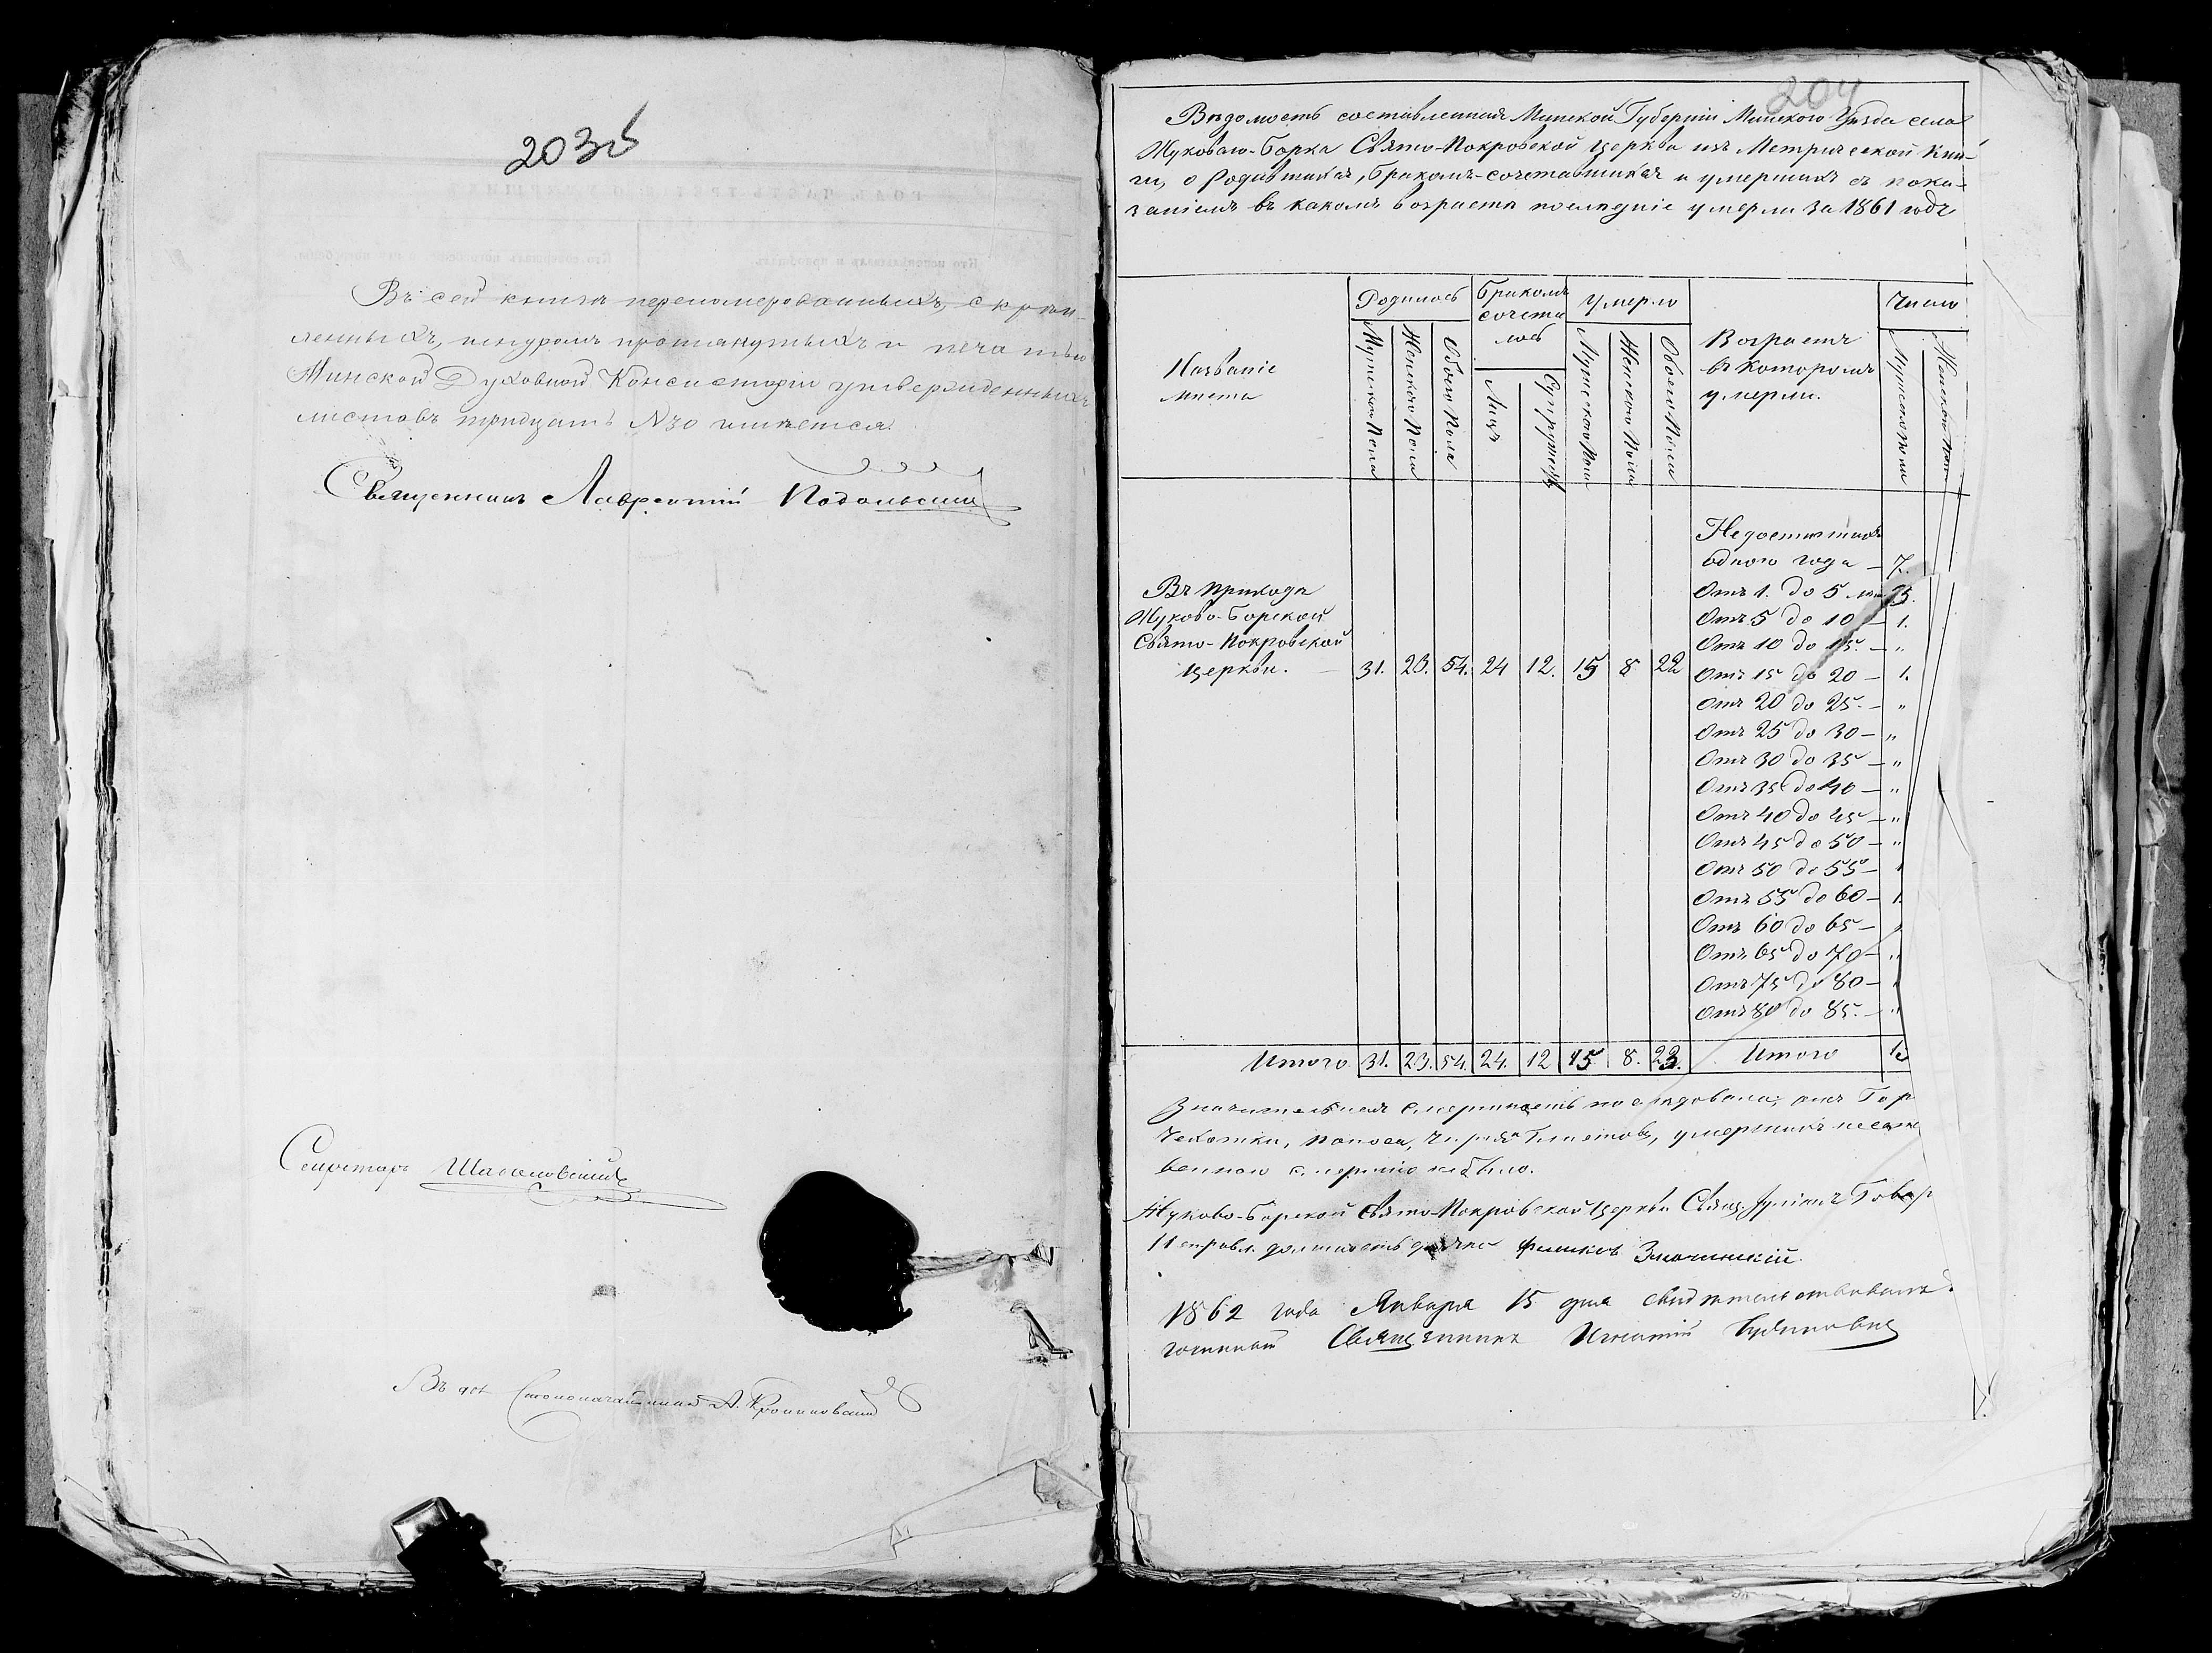 203б
Въ сей книгѣ перенумерованныхъ, скрѣп-
ленныхъ, шнуромъ протянутыхъ и печатью
Минской Духовной Консисторіи утвержденныхъ
листовъ тридцать №30 имѣется.
Священникъ Лаврентій Подольскій
Секретарь
Въ дол Столоначальника А.
204
Вѣдомость составленная Минской Губерніи Минскаго Уѣзда села
Жуковаго-Борка Свято-Покровской церкви изъ Метрической Кни-
ги, о Родившихся, бракомъ-сочетавшихся и умершихъ съ пока-
заніемъ въ какомъ возрастѣ послѣдніе умерли за 1861 годъ
Названіе
мѣста
Родилось
Мужеска Пола
Женскаго Пола
Обоего Пола
Бракомъ
сочета
лось
Лицъ
Супружествъ
Умерло
Мужескаго Пола
Женскаго Пола
Обоего Пола
Возрастъ
въ которомъ
умерли.
Число
Мужеска пола
Женскаго пола
Въ приходѣ
Жуково-Борской
Свято-Покровской
церкви. — 31. 23. 54. 24 12. 15 8 22
Недостигшихъ
одного года — 7.
Отъ 1. до 5 лѣт 5.
Отъ 5 до 10 — 1.
Отъ 10 до 15. — "
Отъ 15 до 20 — 1.
Отъ 20 до 25. — "
Отъ 25 до 30 — "
Отъ 30 до 35 — "
Отъ 35 до 40 — "
Отъ 40 до 45 — "
Отъ 45 до 50 — "
Отъ 50 до 55 —
Отъ 55 до 60 — 1.
Отъ 60 до 65 —
Отъ 65 до 70 — "
Отъ 75 до 80 —
Отъ 80 до 85. — "
Итого 31. 23. 54. 24. 12 15 8. 23. Итого 1
Значительная смертность послѣдовала, отъ Гор
Чехотки, поноса, Червя Глистовъ, умершихъ несом
венною смертію небыло.
Жуково-Борской Свято-Покровской Церкви Свящ.
Исправл. должность дьячка
1862 года Января 15 дня свидѣтельствовалъ
Священникъ Игнатій